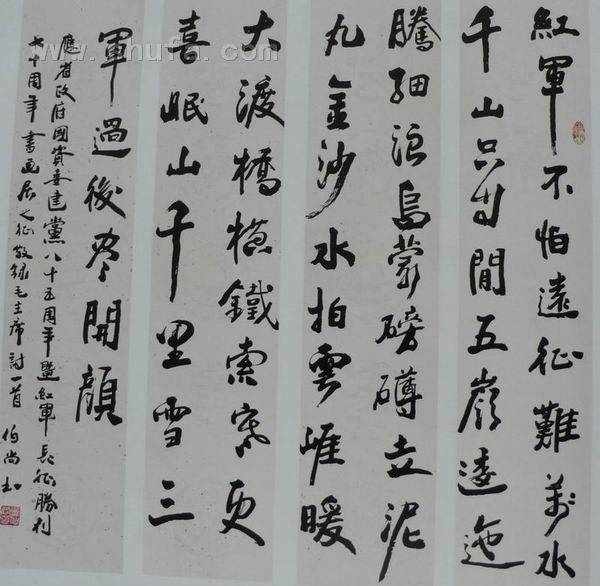 紅軍不怕遠征難萬水
千山只等閒五嶺逶迤
騰細浪烏蒙磅礴走泥
丸金沙水拍雲崖暖
大渡橋橫鐵索寒更
喜岷山千里雪三
軍過後盡開顏
應省政府國資委建黨八十五周年暨紅軍長征勝利
七十周年書画展之征敬録毛主席詩一首 伯尚書